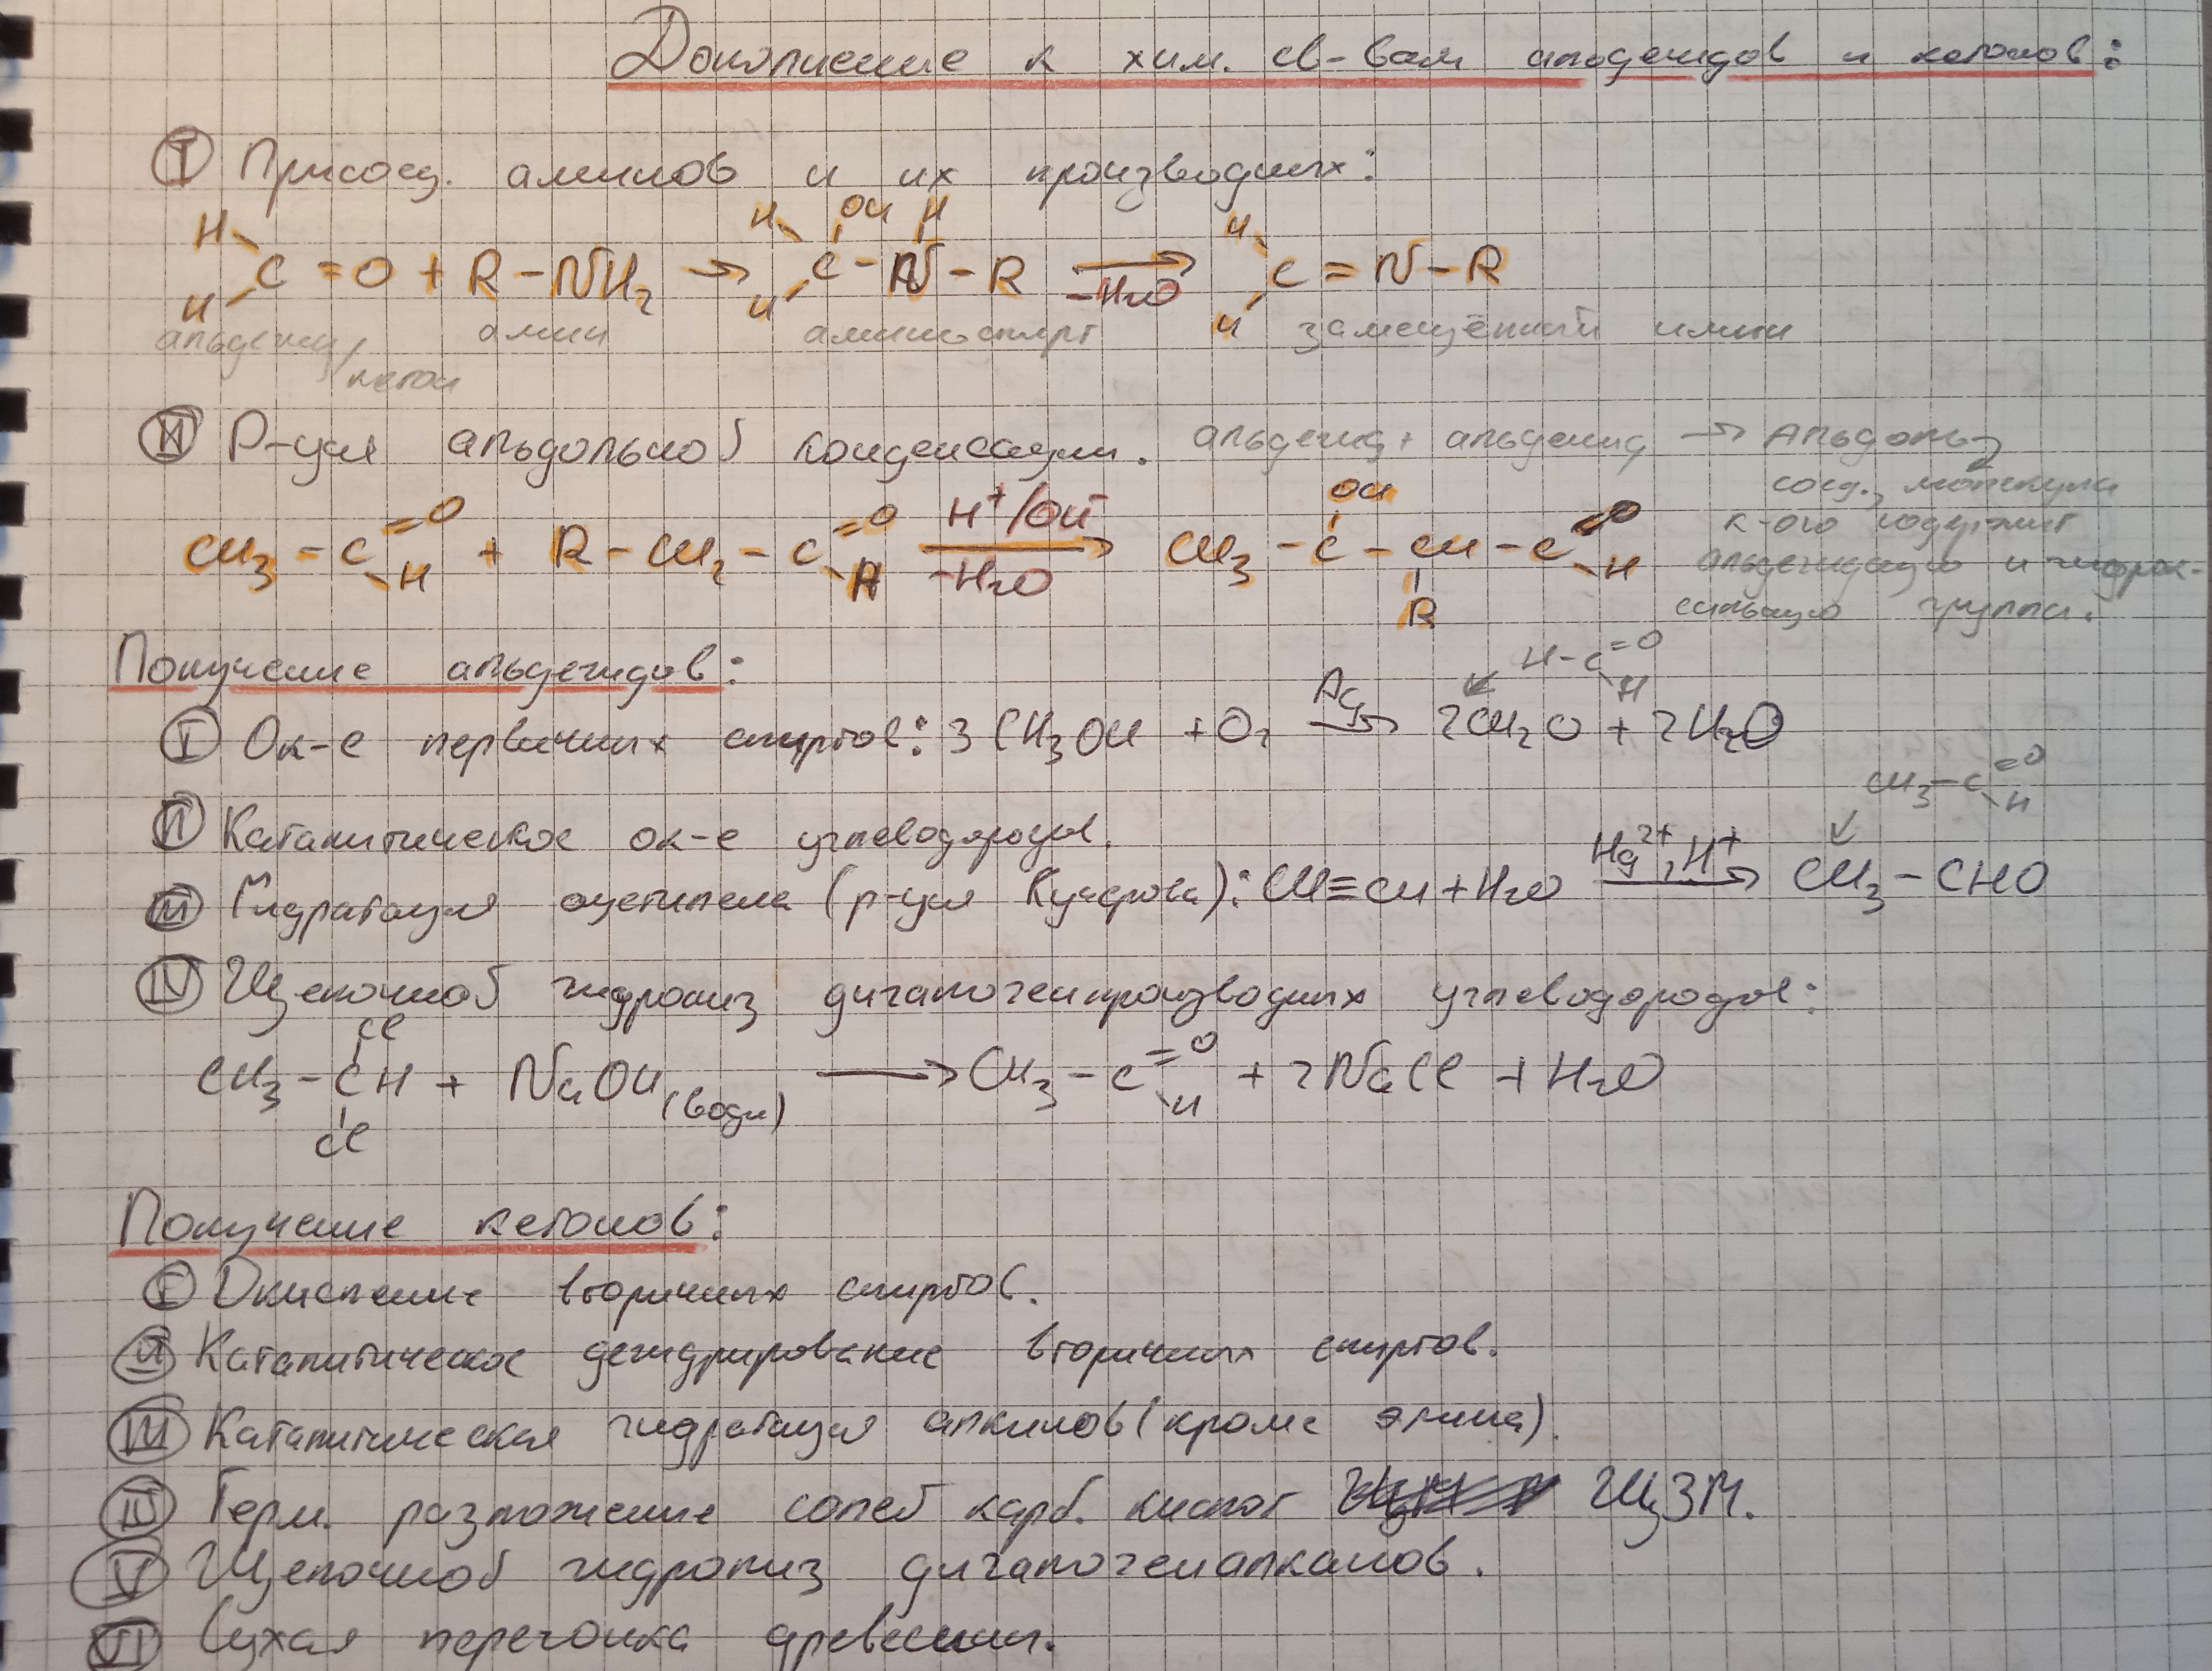 Дополнение к хим. св-вам альдегидов и кетонов:
I Присоед. аминов и их производных:
H H C = O + R – NH₂ → H H C(OH) – N(H) – R →(–H₂O) H H C = N – R
альдегид/кетон амин аминоспирт замещённый имин
II Р-ция альдольной конденсации. альдегид + альдегид → Альдоль
соед., молекула
к-ого содержит
альдегидную и гидрок-
сильную группы.
CH₃ – C(=O) – H + R – CH₂ – C(=O) – H →(H⁺/OH⁻, –H₂O) CH₃ – C(OH) – CH(R) – C(=O) – H
Получение альдегидов:
H – C(=O) – H
I Ок-е первичных спиртов: 3 CH₃OH + O₂ →(Ag) 2CH₂O + 2H₂O
CH₃ – C(=O) – H
II Каталитическое ок-е углеводородов.
III Гидратация ацетилена (р-ция Кучерова): CH≡CH + H₂O →(Hg²⁺, H⁺) CH₃ – CHO
IV Щелочной гидролиз дигалогенпроизводных углеводородов:
CH₃ – C(Cl)(Cl)H + NaOH (водн) → CH₃ – C(=O) – H + 2NaCl + H₂O
Получение кетонов:
I Окисление вторичных спиртов.
II Каталитическое дегидрирование вторичных спиртов.
III Каталитическая гидратация алкинов (кроме этина).
IV Терм. разложение солей карб. кислот ЩЗМ.
V Щелочной гидролиз дигалогеналканов.
VI Сухая перегонка древесины.